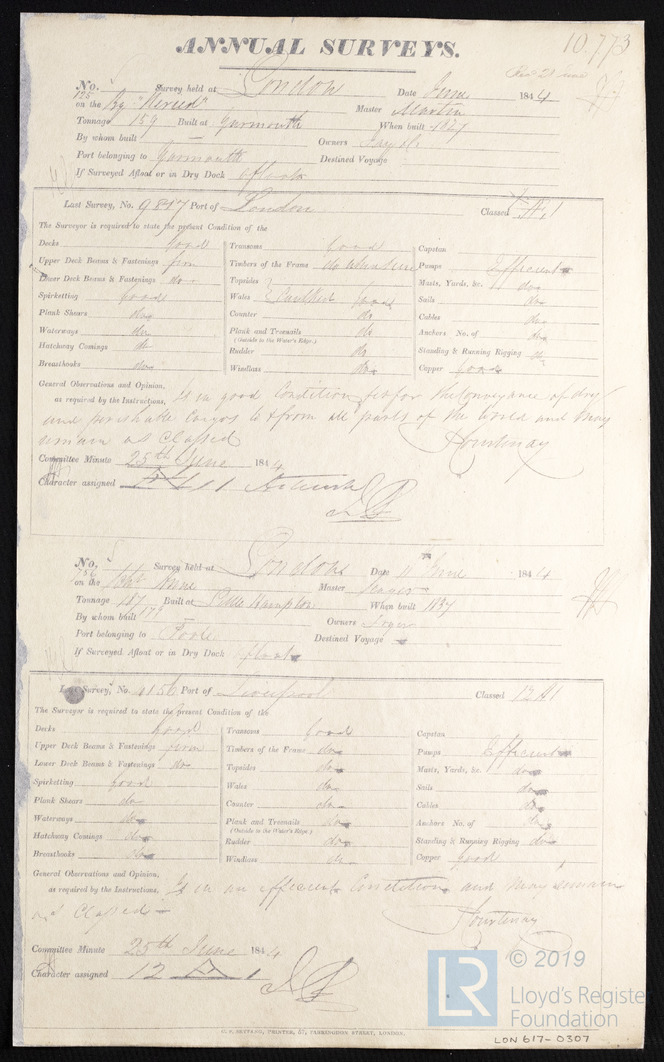 10.773
ANNUAL SURVEYS.
Recd 21 June
No. 125 Survey held at London Date June 1844
on the Bg "Nereid" Master Martin
Tonnage 159 Built at Yarmouth When built 1827
By whom built — Owners
Port belonging to Yarmouth Destined Voyage
If Surveyed Afloat or in Dry Dock afloat
Last Survey, No. 9817 Port of London Classed Æ 1
The Surveyor is required to state the present Condition of the
Decks good Transoms good Capstan
Upper Deck Beams & Fastenings firm Timbers of the Frame do where seen Pumps Efficient
Lower Deck Beams & Fastenings do Topsides Masts, Yards, &c. do
Spirketting good Wales Caulked good Sails do
Plank Shears do Counter do Cables do
Waterways do Plank and Treenails do Anchors No. of do
(Outside to the Water's Edge.)
Hatchway Comings do Rudder do Standing & Running Rigging do
Breasthooks do Windlass do Copper good
General Observations and Opinion,
as required by the Instructions, Is in good Condition, fit for the Conveyance of dry
and perishable Cargos to & from all parts of the World and may
remain as Classed
Courtenay
Committee Minute 25th June 1844
Character assigned Æ 1
No. 756 Survey held at London Date 11 June 1844
on the Schr Anne Master
Tonnage 187 Built at Little Hampton When built 1837
179
By whom built Owners
Port belonging to Poole Destined Voyage
If Surveyed Afloat or in Dry Dock afloat
Last Survey, No. 4156 Port of Liverpool Classed 12 A1
The Surveyor is required to state the present Condition of the
Decks good Transoms good Capstan
Upper Deck Beams & Fastenings firm Timbers of the Frame do Pumps Efficient
Lower Deck Beams & Fastenings do Topsides do Masts, Yards, &c. do
Spirketting good Wales do Sails do
Plank Shears do Counter do Cables do
Waterways do Plank and Treenails do Anchors No. of do
(Outside to the Water's Edge.)
Hatchway Comings do Rudder do Standing & Running Rigging do
Breasthooks do Windlass do Copper good
General Observations and Opinion,
as required by the Instructions, Is in an efficient Condition and may remain
as Classed —
Courtenay
Committee Minute 25th June 1844
Character assigned 12 A 1
LR © 2019
Lloyd's Register
Foundation
LON 617-0307